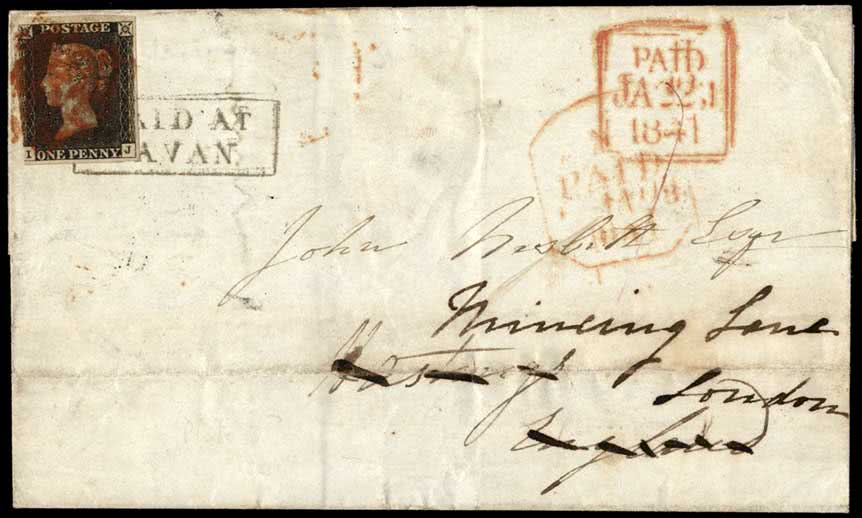 POSTAGE
I ONE PENNY J
AID AT
AVAN
PAID
JA 22
1841
PAID
John Nesbitt Esqr
Mincing Lane
Hastings
London
England